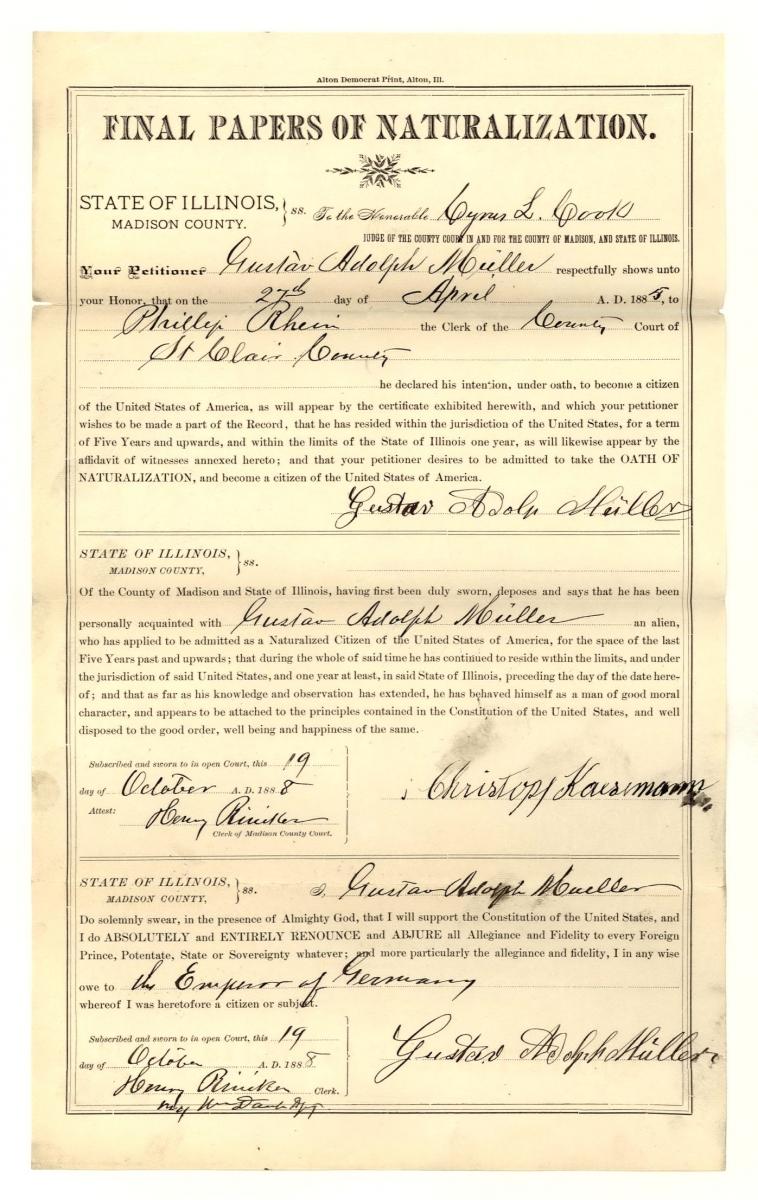 Alton Democrat Print, Alton, Ill.
FINAL PAPERS OF NATURALIZATION.
STATE OF ILLINOIS, } ss. To the Honorable Cyrus L. Cook
MADISON COUNTY.
JUDGE OF THE COUNTY COURT IN AND FOR THE COUNTY OF MADISON, AND STATE OF ILLINOIS.
Your Petitioner Gustav Adolph Müller respectfully shows unto
your Honor, that on the 27th day of April A. D. 1885, to
Phillip Rhein the Clerk of the County Court of
St Clair County
he declared his intention, under oath, to become a citizen
of the United States of America, as will appear by the certificate exhibited herewith, and which your petitioner
wishes to be made a part of the Record, that he has resided within the jurisdiction of the United States, for a term
of Five Years and upwards, and within the limits of the State of Illinois one year, as will likewise appear by the
affidavit of witnesses annexed hereto; and that your petitioner desires to be admitted to take the OATH OF
NATURALIZATION, and become a citizen of the United States of America.
Gustav Adolp Müller
STATE OF ILLINOIS, } ss.
MADISON COUNTY,
Of the County of Madison and State of Illinois, having first been duly sworn, deposes and says that he has been
personally acquainted with Gustav Adolph Müller an alien,
who has applied to be admitted as a Naturalized Citizen of the United States of America, for the space of the last
Five Years past and upwards; that during the whole of said time he has continued to reside within the limits, and under
the jurisdiction of said United States, and one year at least, in said State of Illinois, preceding the day of the date here-
of; and that as far as his knowledge and observation has extended, he has behaved himself as a man of good moral
character, and appears to be attached to the principles contained in the Constitution of the United States, and well
disposed to the good order, well being and happiness of the same.
Subscribed and sworn to in open Court, this 19
day of October A. D. 1888
Christopf Kaesemann
Attest: Henry Riniker
Clerk of Madison County Court.
STATE OF ILLINOIS, } ss. I, Gustav Adolph Mueller
MADISON COUNTY,
Do solemnly swear, in the presence of Almighty God, that I will support the Constitution of the United States, and
I do ABSOLUTELY and ENTIRELY RENOUNCE and ABJURE all Allegiance and Fidelity to every Foreign
Prince, Potentate, State or Sovereignty whatever; and more particularly the allegiance and fidelity, I in any wise
owe to the Emperor of Germany
whereof I was heretofore a citizen or subject.
Subscribed and sworn to in open Court, this 19
day of October A. D. 1888
Gustav Adolph Müller
Henry Riniker Clerk.